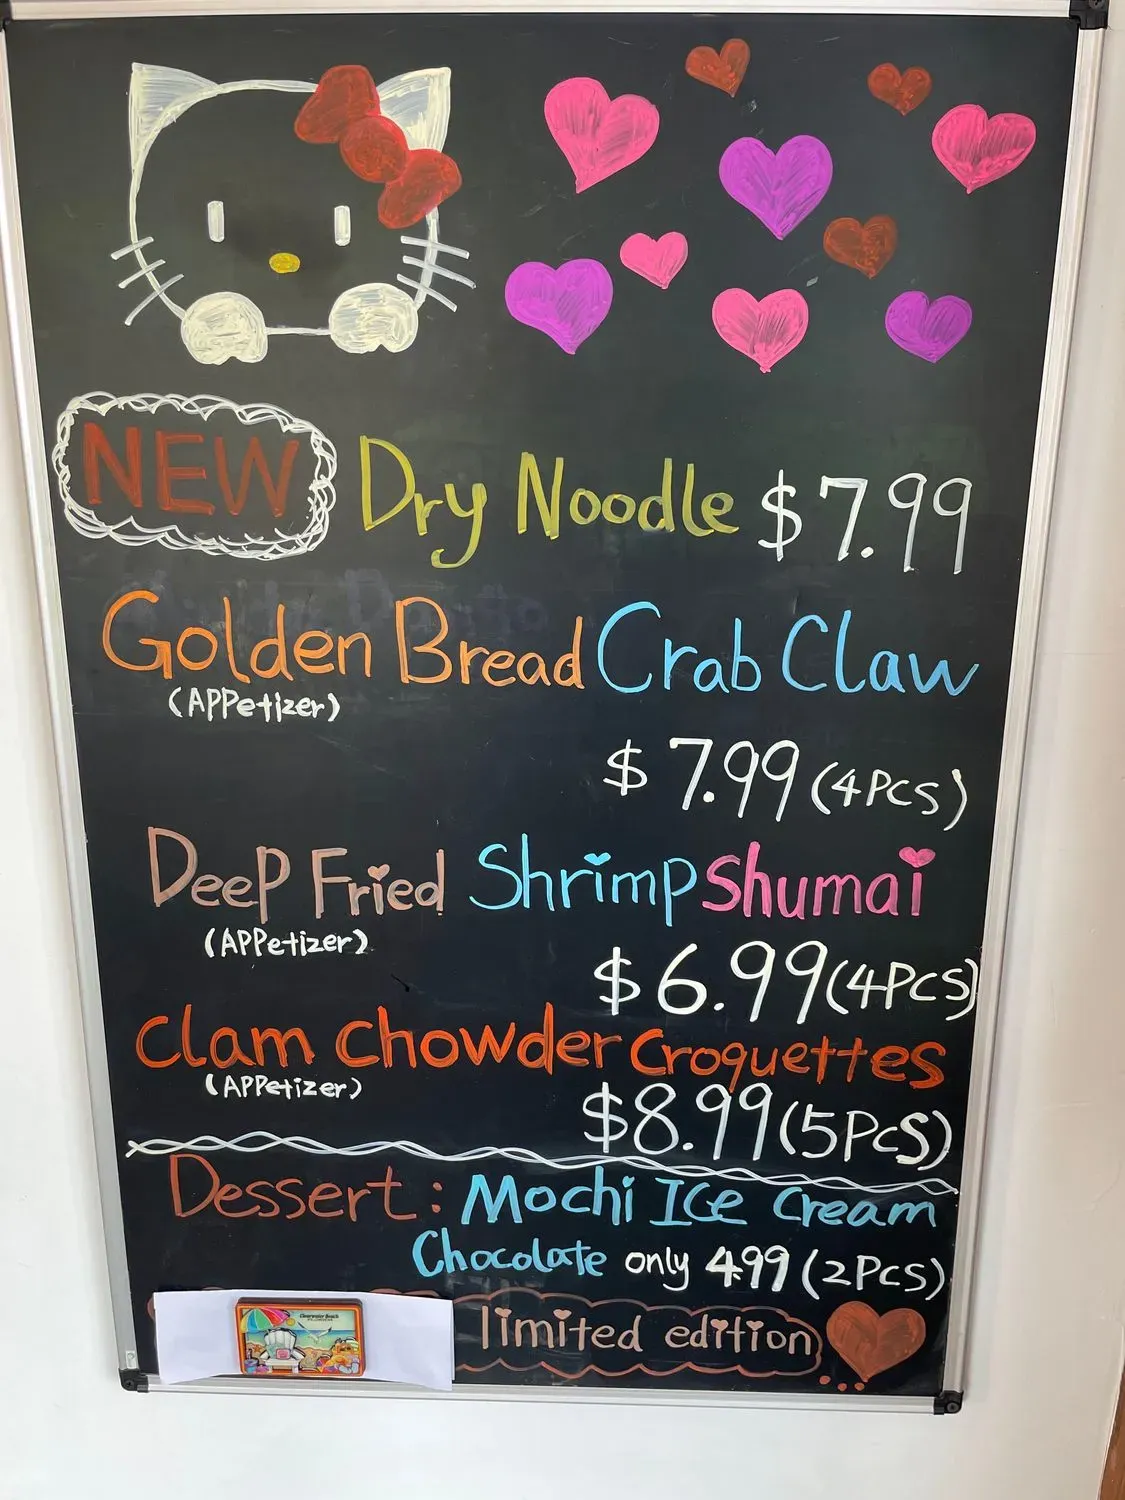 NEW Dry Noodle $7.99
Golden Bread Crab Claw
(APPetizer)
$7.99 (4PCS)
DeeP Fried Shrimp Shumai
(APPetizer)
$6.99 (4PCS)
Clam Chowder Croquettes
(APPetizer)
$8.99 (5PCS)
Dessert: Mochi ICe Cream
Chocolate only 4.99 (2PCS)
limited edition
Clearwater Beach